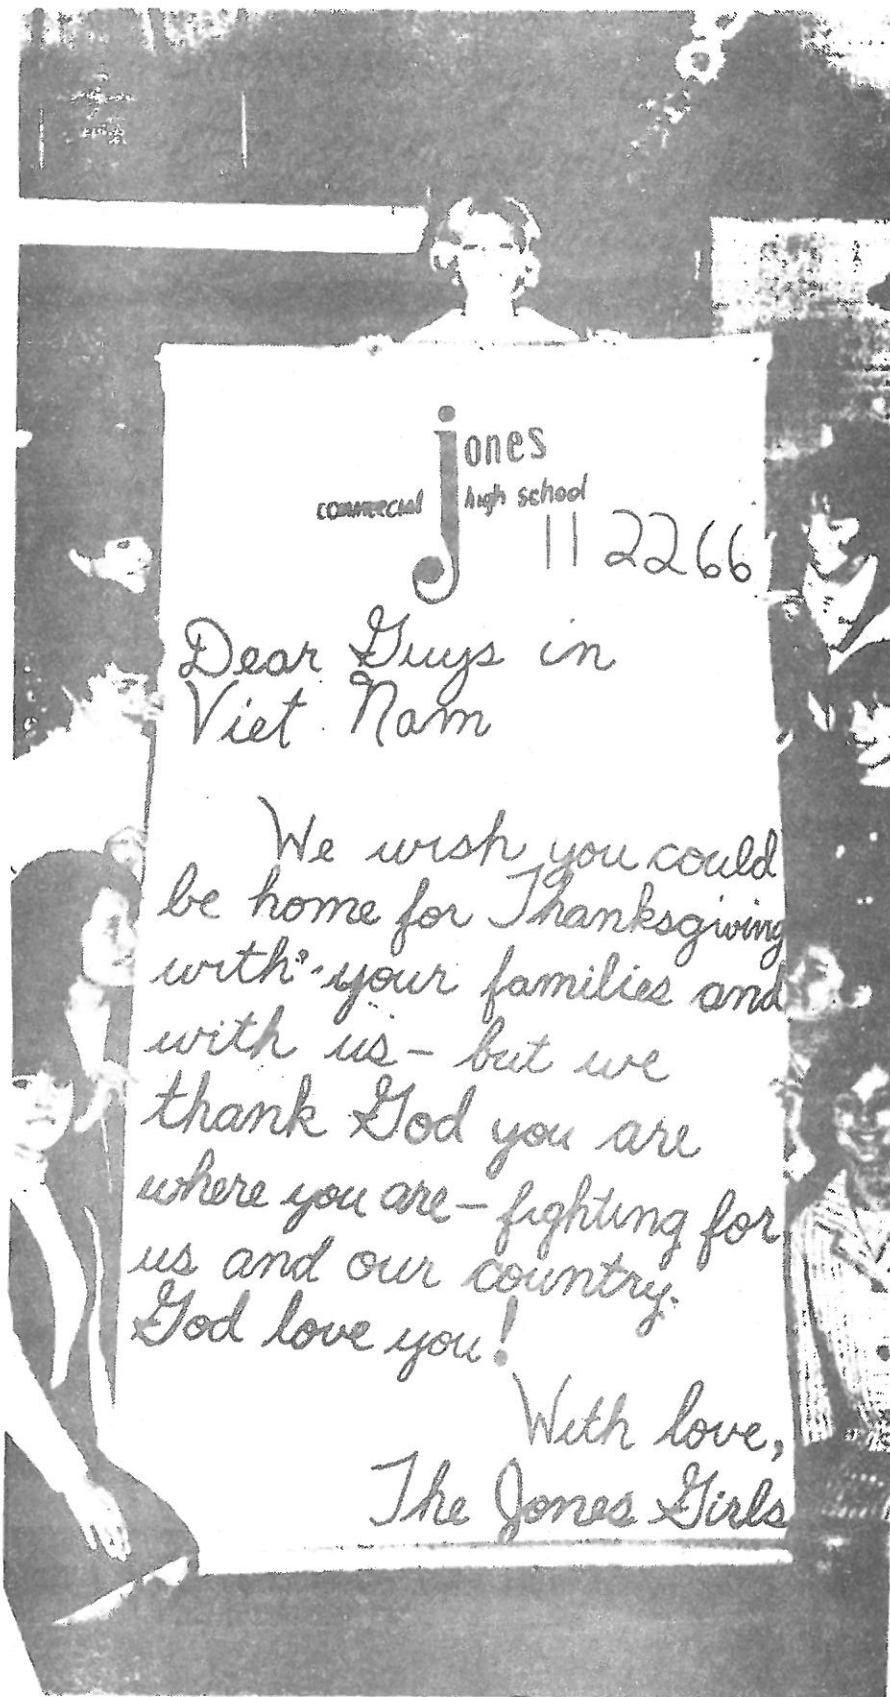 jones
commercial high school
11 22 66
Dear Guys in
Viet Nam
We wish you could
be home for Thanksgiving
with your families and
with us – but we
thank God you are
where you are – fighting for
us and our country.
God love you!
With love,
The Jones Girls